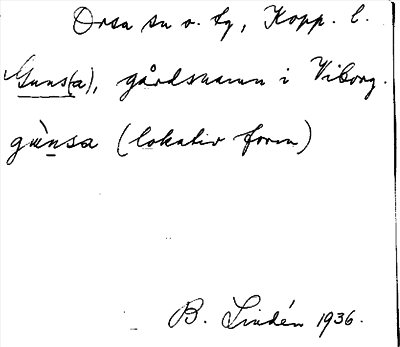 Orsa sn o. tg, Kopp. l.
Guns(a), gårdsnamn i Viborg.
gùnsa (lokativ form)
B. Lindén 1936.